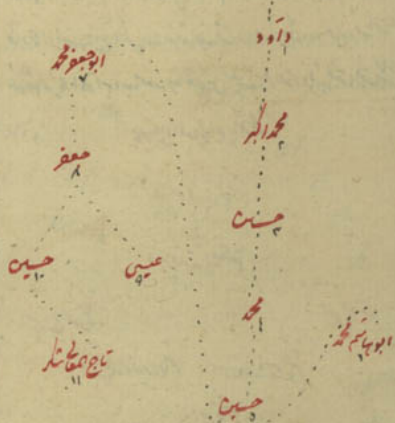 داود
۱
محمد اکبر
۲
حسین
۳
محمد
۴
حسین
۵
ابوهاشم محمد
۶
ابوجعفر محمد
۷
جعفر
۸
عیسی
۹
حسین
۱۰
تاج المعالی شکر
۱۱